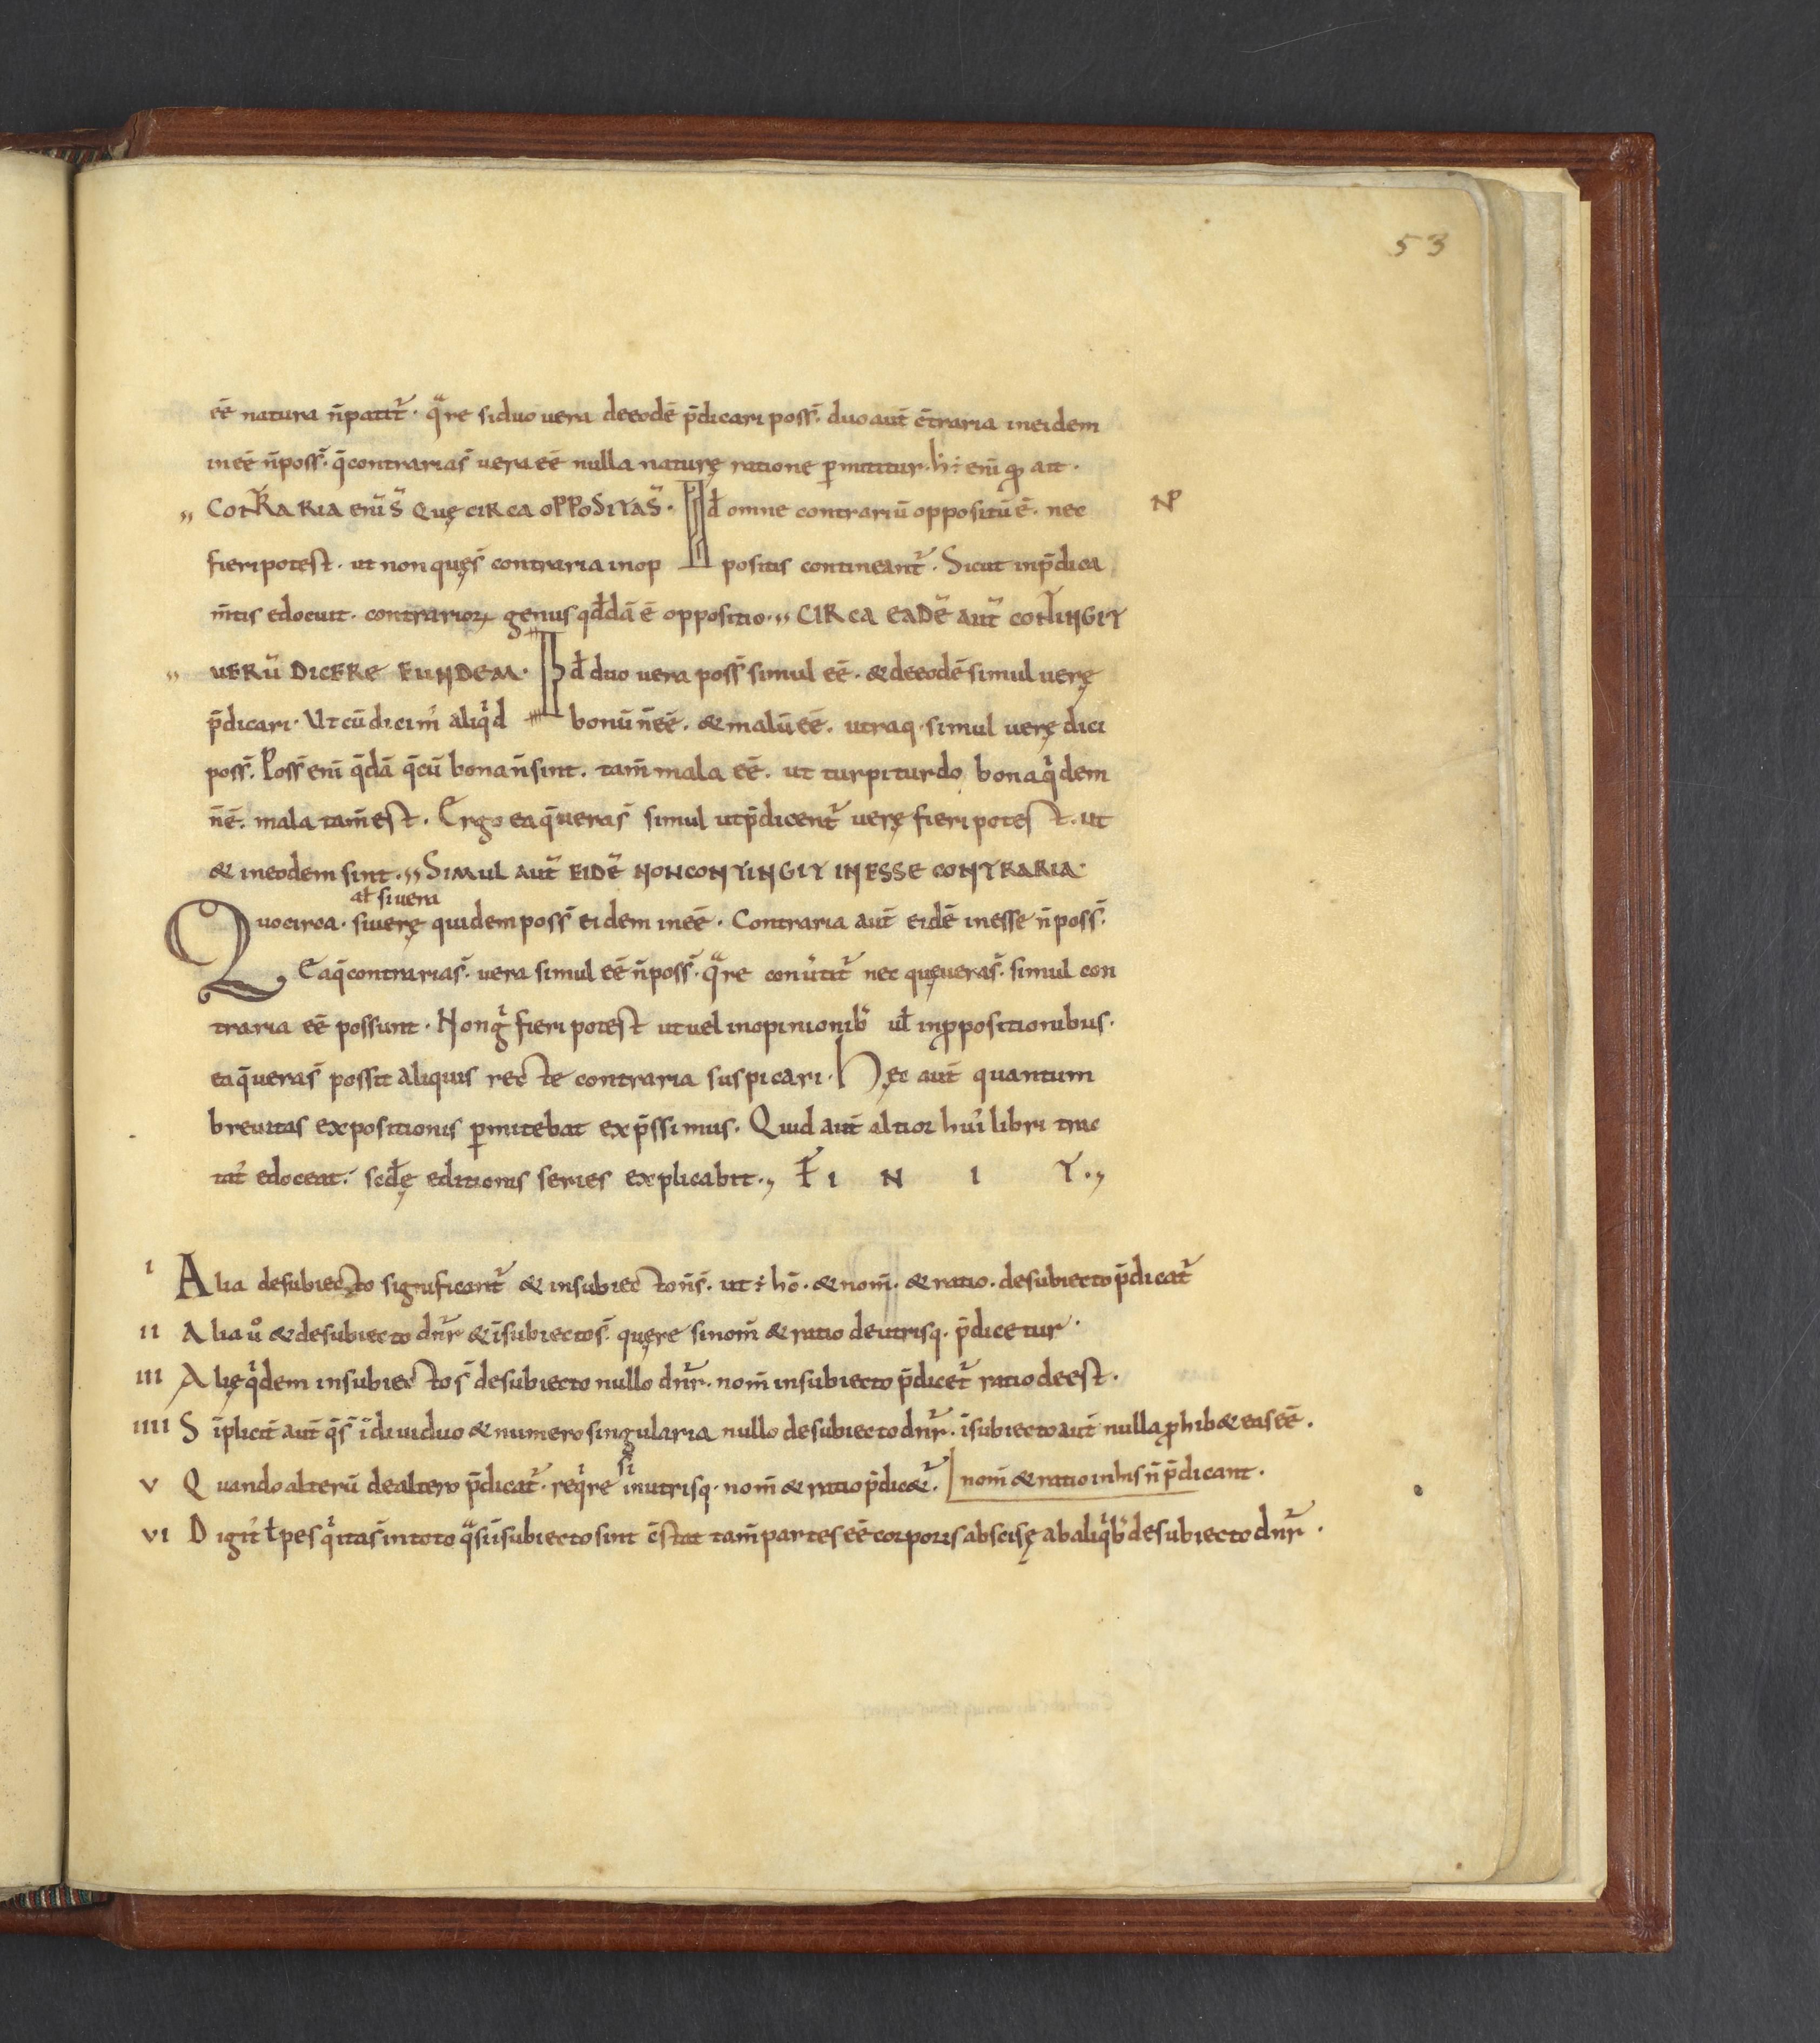 53
eē natura n̄patit᷑. qͣre si duo uera deeodē p̄dicari poss̄. duo aut̄ c̄traria ineidem
ineē n̄poss̄. q̄contrarias̄ uera eē nulla naturę ratione ꝑmittitur. h̄ ÷ enī qđ ait.
„ CONT̄RARIA enī S̄ Quę CIRCA OPPOSITAS̄. Id omne contrariū oppositū ē. nec NP
fieri potest. ut non quęs̄ contraria inop positis contineant᷑. Sicut inp̄dica
m̄tis edocuit. contrarioꝝ genus qđdā ē oppositio. „ CIRCA EADĒ AUT̄ CONTINGIT
„ UERŪ DICERE EUNDEM. Id duo uera poss̄ simul eē. & deeodē simul uerę
p̄dicari. Ut cū dicim᷒ aliqͥd bonū n̄eē. & malū eē. utraq. simul uerę dici
poss̄. Poss̄ enī q̄dā q̄cū bona n̄sint. tam̄ mala eē. ut turpiturdo bona qͥdem
n̄ē. mala tam̄ est. Ergo ea q̄ueras̄ simul ut p̄dicent᷑ uerę fieri potest. ut
& ineodem sint. „ SIMUL AUT̄ EIDĒ NONCONTINGIT INESSE CONTRARIA.
aƚ si uera
Quocirca. siuerę quidem poss̄ eidem ineē. Contraria aut̄ eidē inesse n̄ poss̄.
Ea q̄contrarias̄. uera simul eē n̄poss̄. qͣre conūtit᷑ nec quęueras̄. simul con
traria eē possunt. Non gͥ fieri potest ut uel inopinionib᷒ uƚ inꝓpositionibus.
ea q̄ueras̄ possit aliquis recte contraria suspicari. Hęc aut̄ quantum
breuitas expositionis ꝑmitebat exp̄ssimus. Quid aut̄ altior hui᷒ libri trac
tat᷒ edoceat. scđę editionis series explicabit. „ F I N I T. „
I Alia desubiecto significant᷑ & insubiecto n̄s̄. ut ÷ hō. & nom̄. & ratio. desubiecto p̄dicat᷑
II Alia uͦ & desubiecto dn̄r & īsubiectos̄. quęre sinom̄ & ratio deutrisq. p̄dicetur.
III Alię qͥdem insubiecto s̄ desubiecto nullo dn̄r. nom̄ insubiecto p̄dicet᷑ ratio deest.
IIII Siplicit̄ aut̄ q̄s̄ īdiuiduo & numero singularia nullo desubiecto dn̄r. īsubiecto aut̄ nulla ꝓhib& eas eē.
si
V Quando alterū dealtero p̄dicat᷑. reqͥre inutrisq. nom̄ & ratio p̄dic&᷑. nom̄ & ratio inhis n̄ p̄dicant.
VI Digit᷒ ƚ pes qͥ itas̄ intoto qͣsi īsubiecto sint c̄stat tam̄ partes eē corporis abscisę abaliqͥb᷒ desubiecto dn̄r.